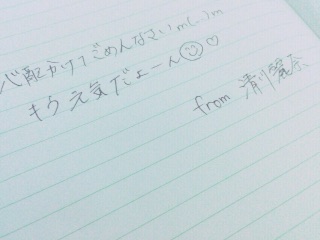 心配かけてごめんなさいm(._.)m
もう元気だよーん☺♡
from 清川麗奈